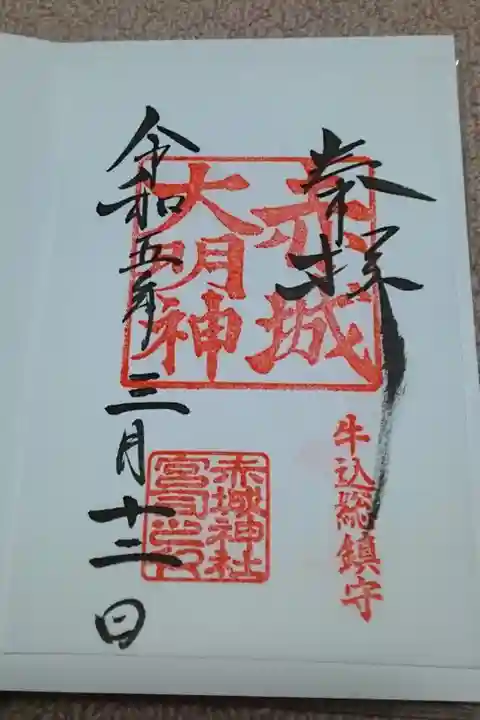 奉拝
赤城
大明神
牛込総鎮守
赤城神社
宮司之印
令和五年三月十二日